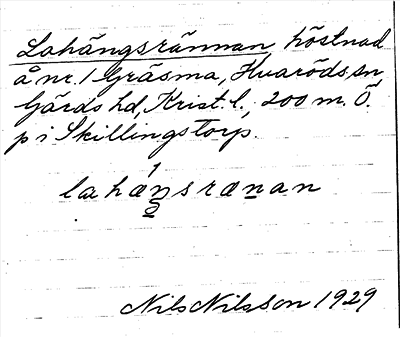 Lahängsrännan, höstnad
å nr. 1 Gräsma, Hvaröds sn,
Gärds hd, Krist. l., 200 m. Ö.
p i Skillingstorp.
1
lahænsrænan
Nils Nilsson 1929